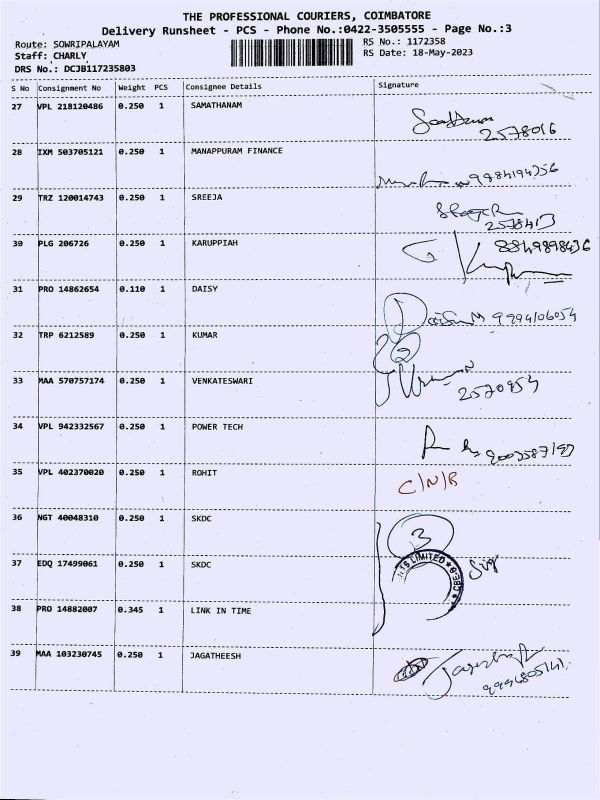 THE PROFESSIONAL COURIERS, COIMBATORE
Delivery Runsheet - PCS - Phone No.:0422-3505555 - Page No.:3
Route: SOWRIPALAYAM RS No.: 1172358
Staff: CHARLY RS Date: 18-May-2023
DRS No.: DCJB117235803
S No Consignment No Weight PCS Consignee Details Signature
27 VPL 218120486 0.250 1 SAMATHANAM
2578016
28 IXM 503705121 0.250 1 MANAPPURAM FINANCE
29 TRZ 120014743 0.250 1 SREEJA
2578413
30 PLG 206726 0.250 1 KARUPPIAH
31 PRO 14862654 0.110 1 DAISY
9994106054
32 TRP 6212589 0.250 1 KUMAR
33 MAA 570757174 0.250 1 VENKATESWARI
2570954
34 VPL 942332567 0.250 1 POWER TECH
35 VPL 402370020 0.250 1 ROHIT C/N/R
36 NGT 40048310 0.250 1 SKDC 3
37 EDQ 17499061 0.250 1 SKDC
LIMITED * CBE-6 *
38 PRO 14882007 0.345 1 LINK IN TIME
39 MAA 103230745 0.250 1 JAGATHEESH